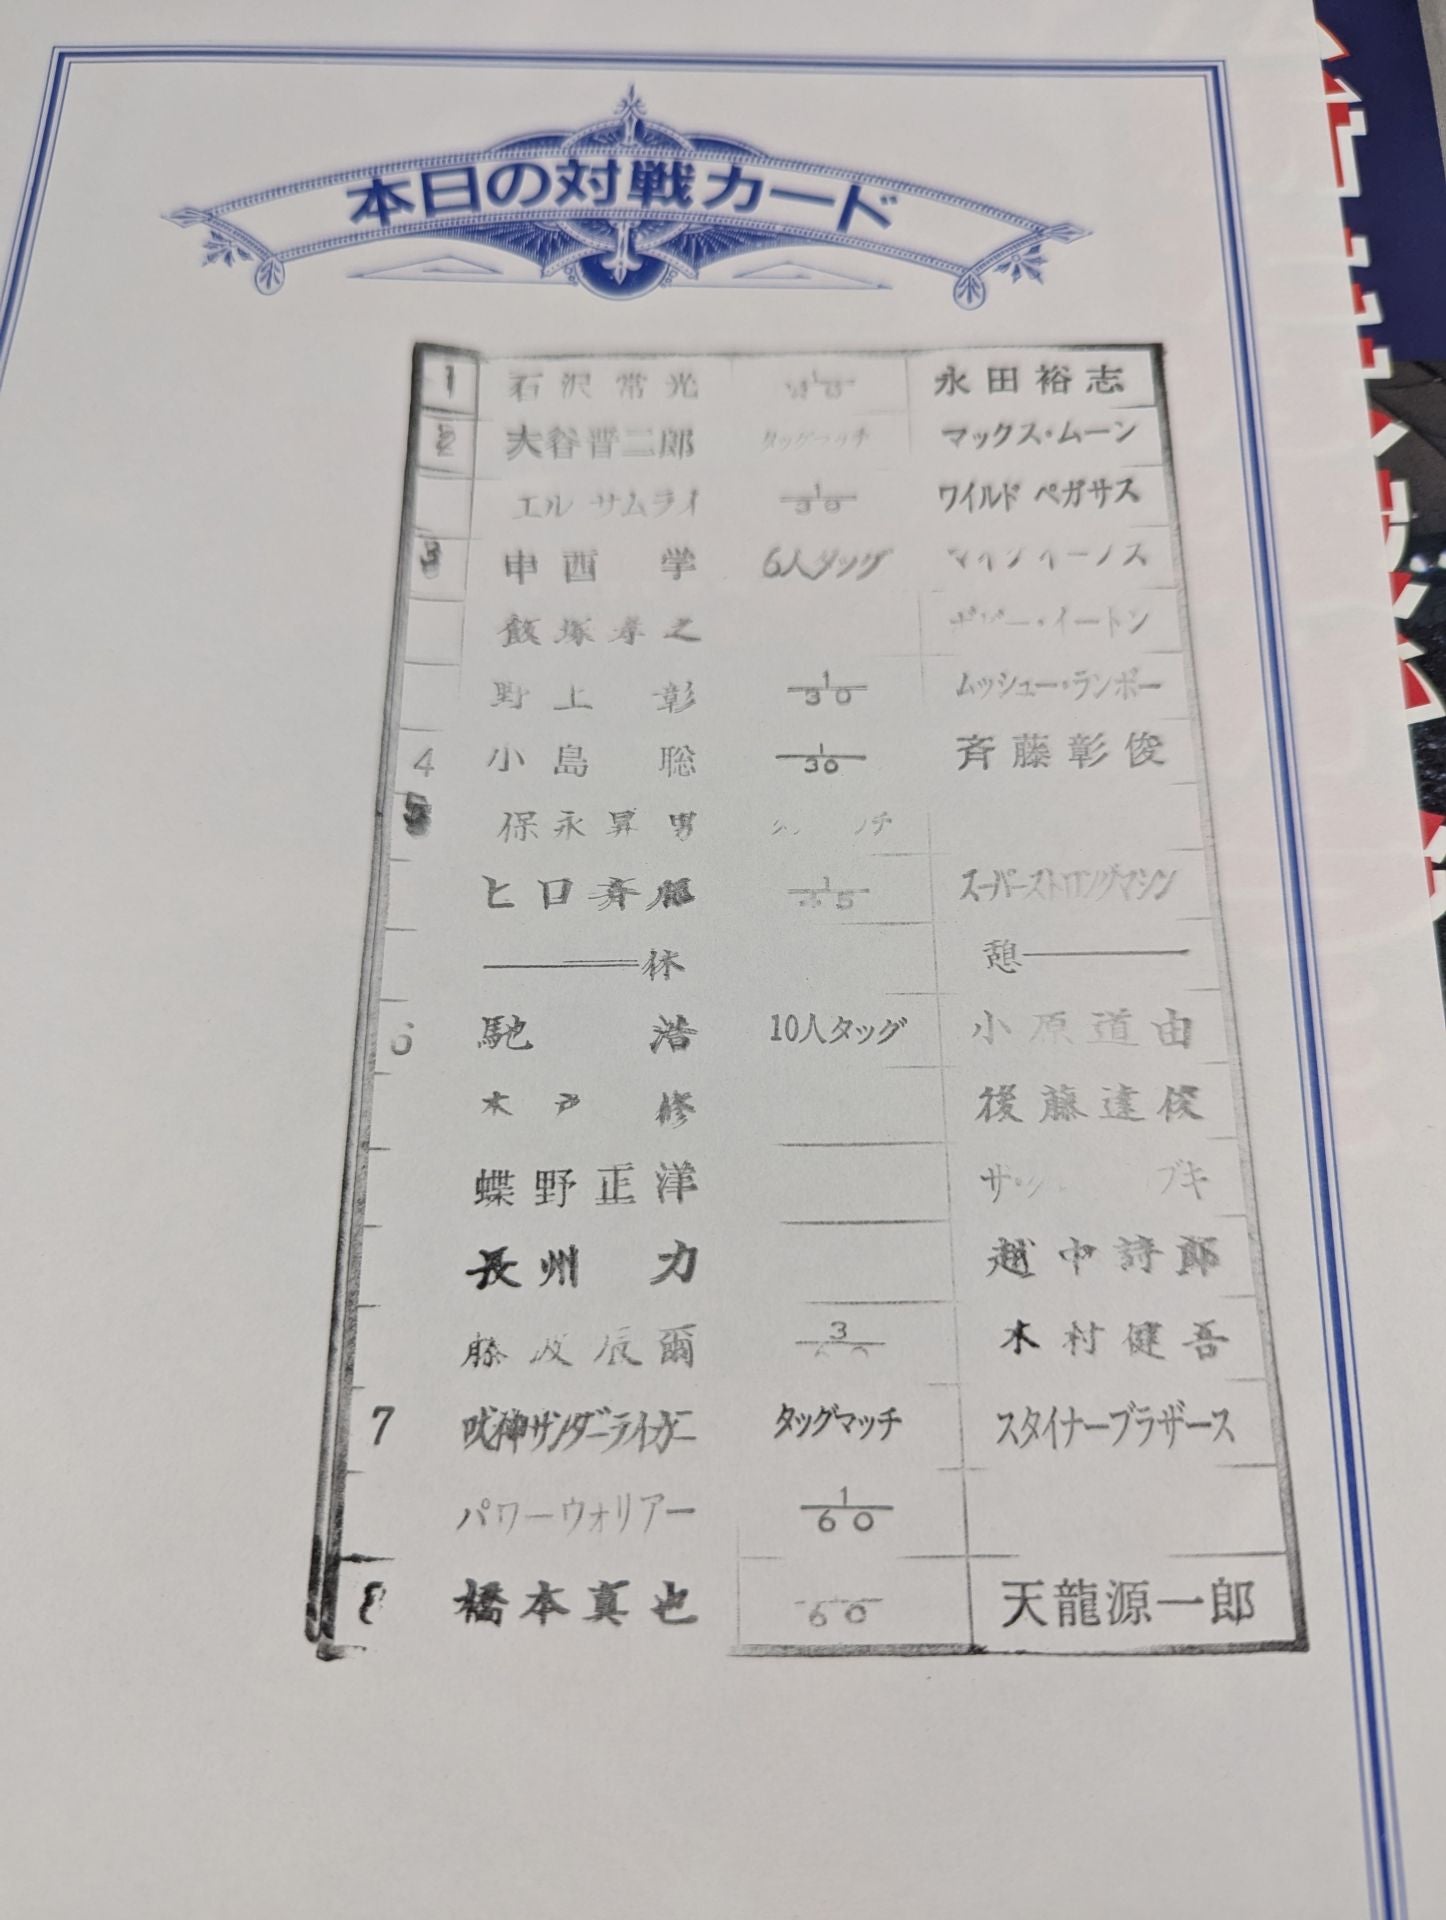 本日の対戦カード
1 石沢常光 永田裕志
2 大谷晋二郎 タッグマッチ マックス・ムーン
エル サムライ 1/30 ワイルド ペガサス
3 中西 学 6人タッグ
飯塚孝之 ボビー・イートン
野上 彰 1/30 ムッシュー・ランボー
4 小島 聡 1/30 斉藤彰俊
5 保永昇男
ヒロ斉藤 スーパーストロングマシン
休 憩
6 馳 浩 10人タッグ 小原道由
木戸 修 後藤達俊
蝶野正洋
長州 力 越中詩郎
藤波辰爾 木村健吾
7 獣神サンダーライガー タッグマッチ スタイナーブラザース
パワーウォリアー 1/60
8 橋本真也 60 天龍源一郎